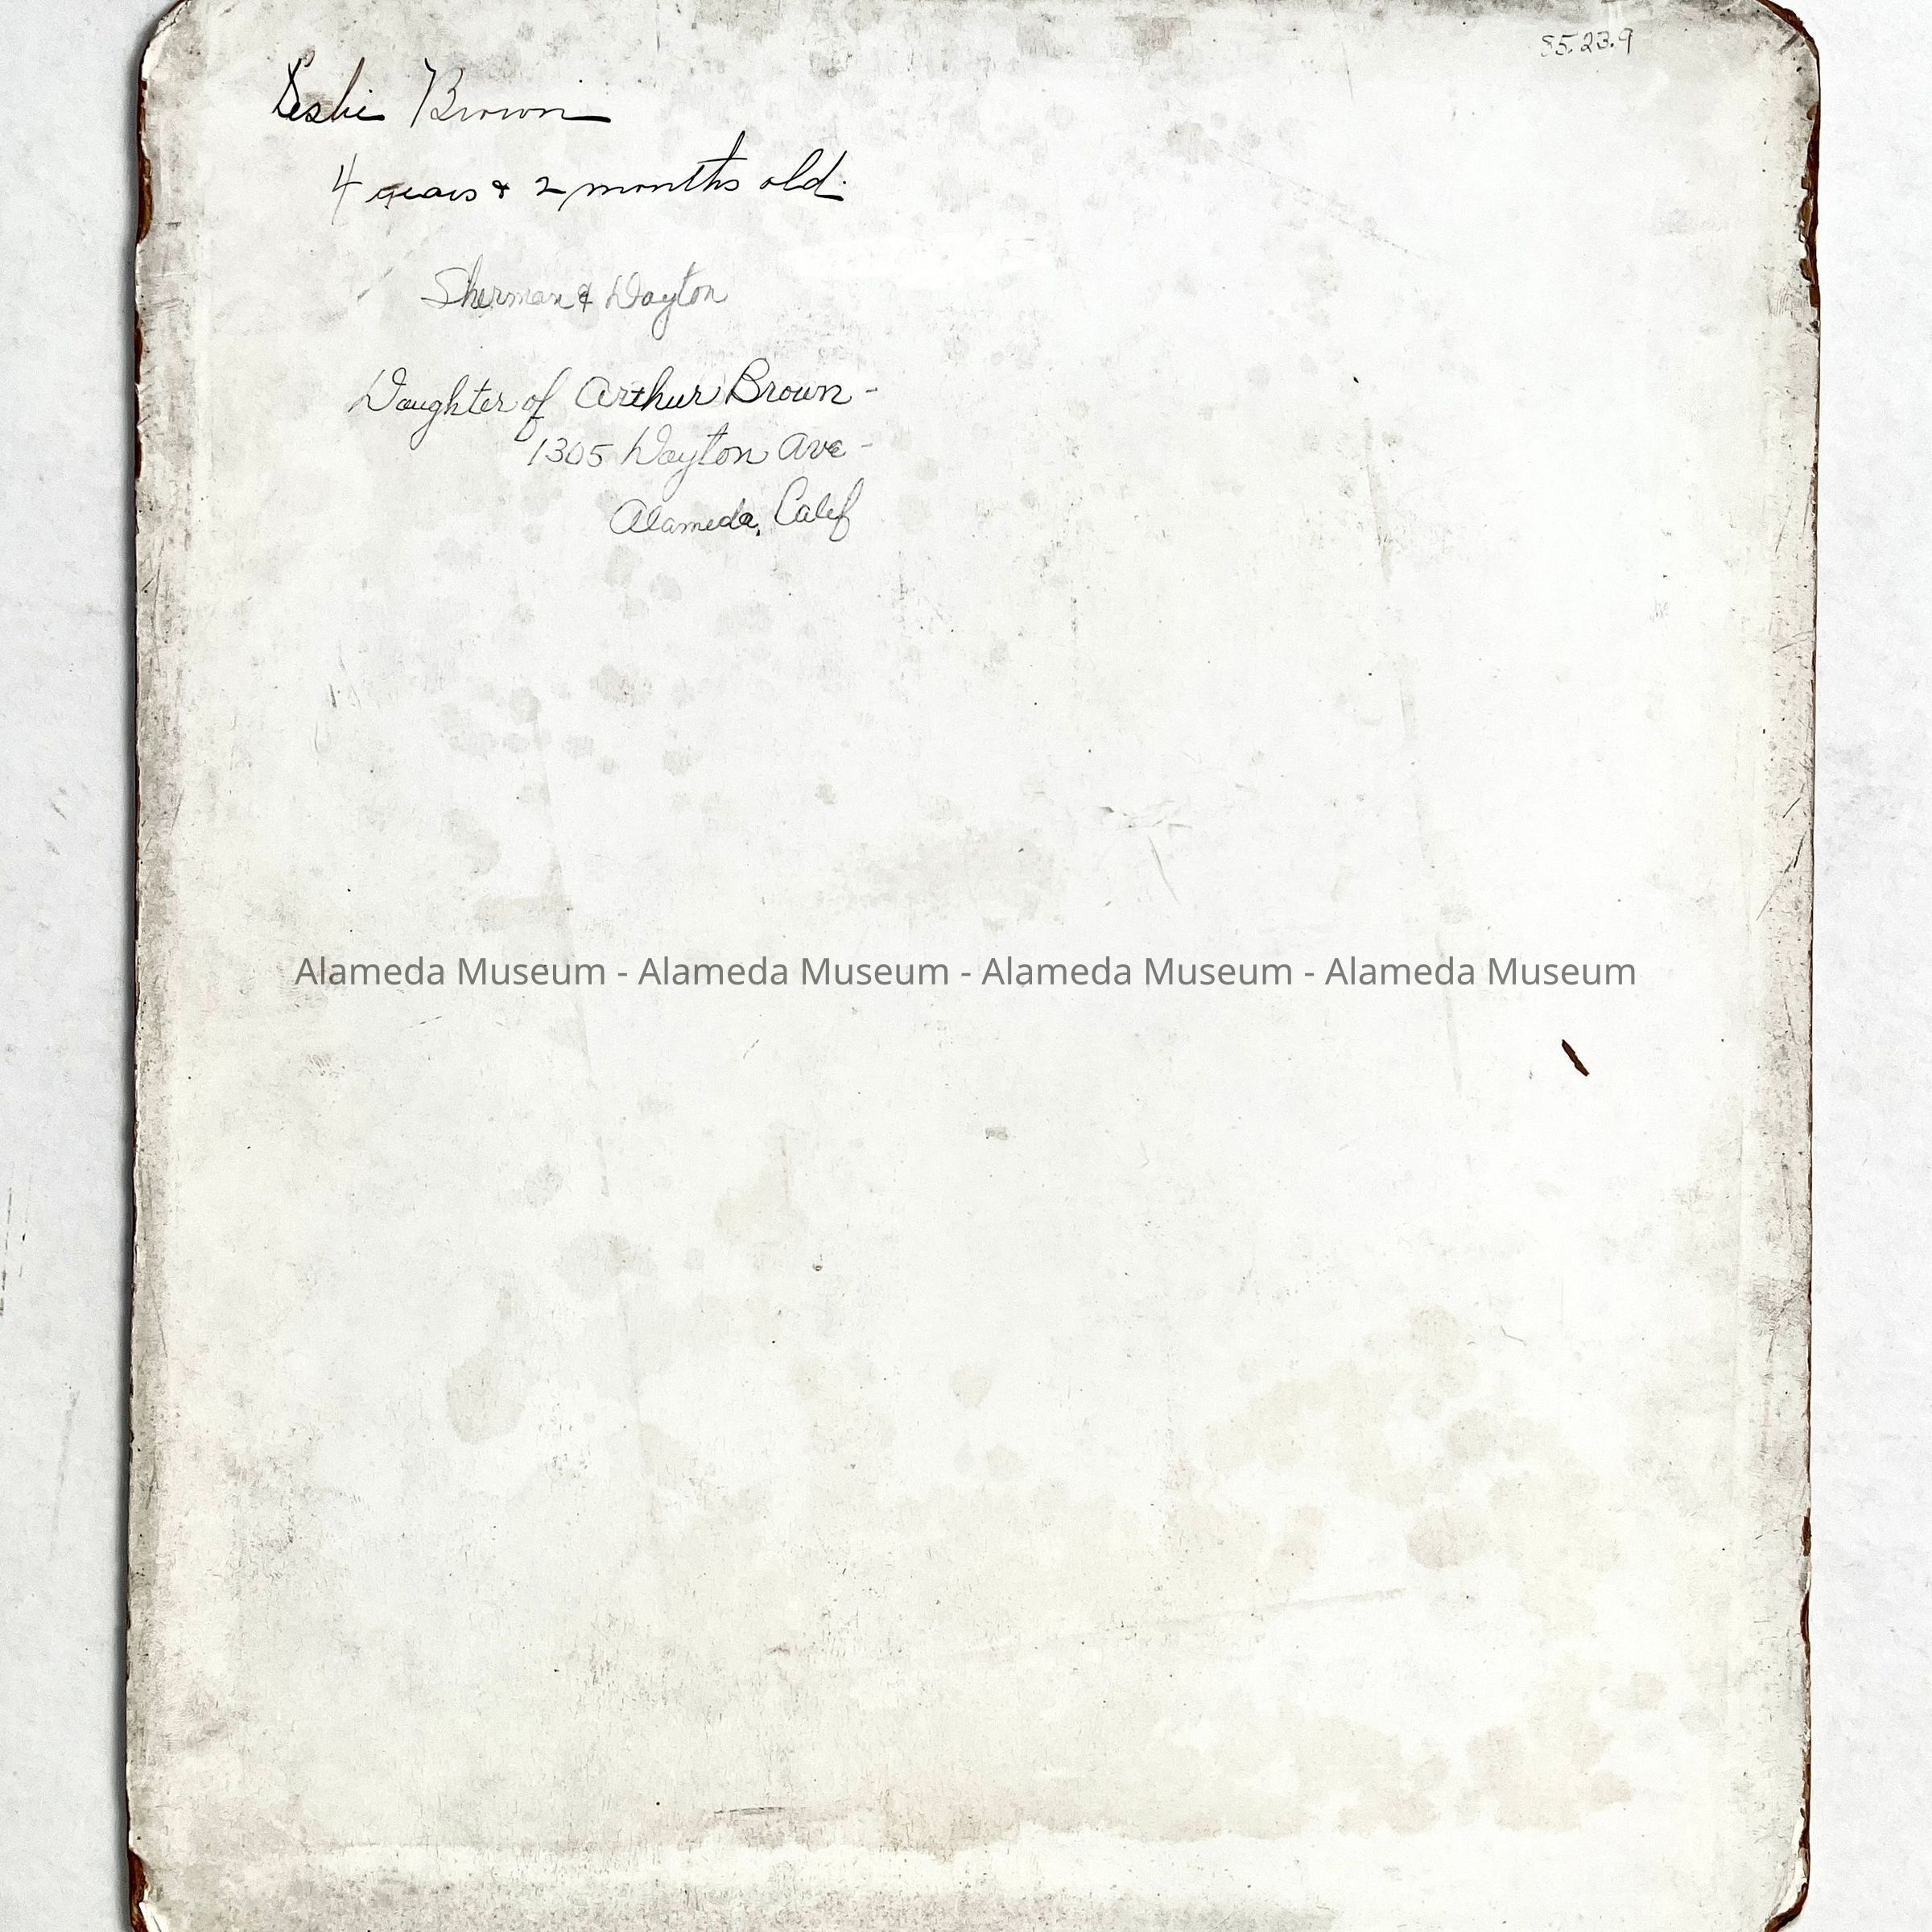 85.23.9
Leslie Brown
4 years & 2 months old.
Sherman & Dayton
Daughter of Arthur Brown -
1305 Dayton Ave -
Alameda, Calif
Alameda Museum - Alameda Museum - Alameda Museum - Alameda Museum